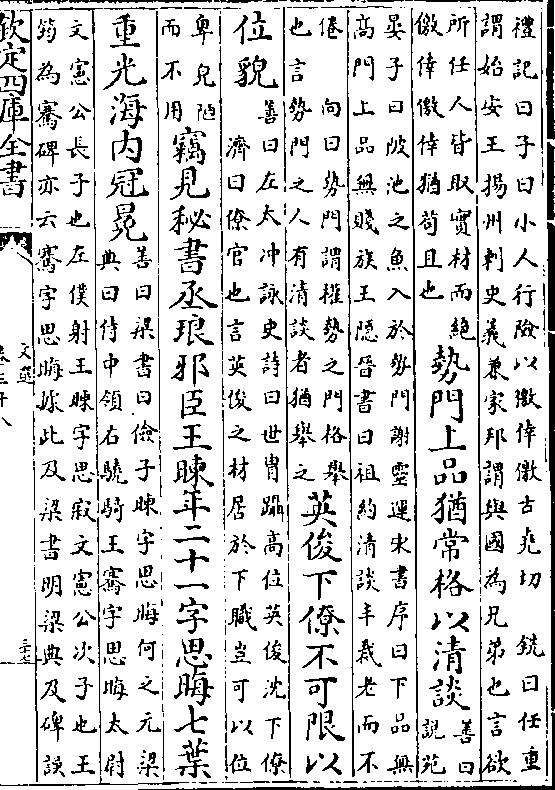 禮記曰子曰小人行險以徼倖徼古堯切　銑曰任重
謂始安王揚州刺史義兼家邦謂與國為兄弟也言欲
所任人皆取實材而絶
徼倖徼倖猶苟且也
勢門上品猶常格以清談
善曰
說苑
晏子曰陂池之魚入於勢門謝靈運宋書序曰下品無
高門上品無賤族王隱晉書曰祖約清談平裁老而不
倦　向曰勢門謂權勢之門格舉
也言勢門之人有清談者猶舉之
英俊下僚不可限以
位貌
善曰左太冲詠史詩曰世胄躡高位英俊沈下僚
濟曰僚官也言英俊之材居於下職豈可以位
卑皃陋
而不用
竊見秘書丞琅邪臣王暕年二十一字思晦七葉
重光海内冠冕
善曰梁書曰儉子暕字思晦何之元梁
典曰侍中領右驍騎王騫字思晦太尉
文憲公長子也左僕射王暕字思寂文憲公次子也王
筠為騫碑亦云騫字思晦據此及梁書明梁典及碑誤
欽定四庫全書
文選
卷三十八
三十七